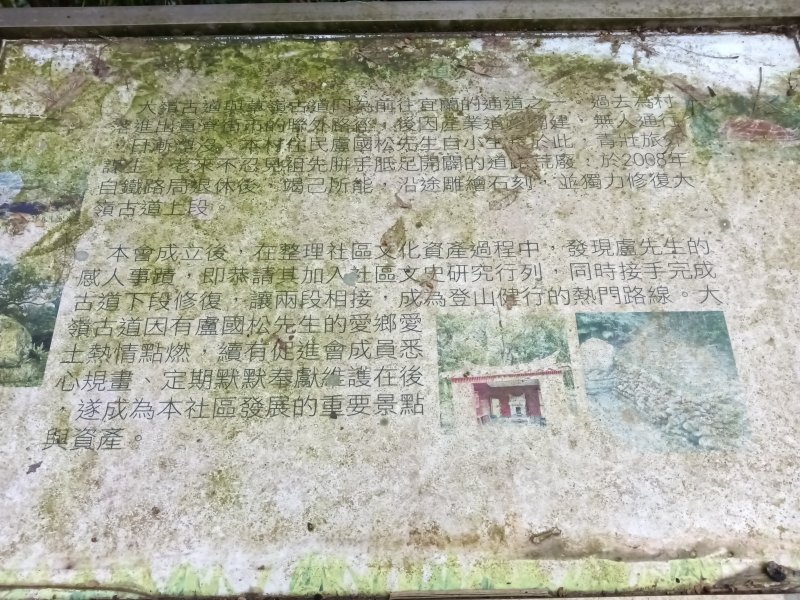 大嶺古道與　嶺古道同為前往宜蘭的通道之一，過去為村
進出貢寮街市的聯外路徑，後因產業道路　建，無人通行
日漸　沒。本村住民盧國松先生自小生長於此，青壯旅外
謀生，老來不忍見祖先胼手胝足開闢的道路荒廢，於2008年
自鐵路局退休後，竭己所能，沿途雕繪石刻，並獨力修復大
嶺古道上段。
本會成立後，在整理社區文化資產過程中，發現盧先生的
感人事蹟，即恭請其加入社區文史研究行列，同時接手完成
古道下段修復，讓兩段相接，成為登山健行的熱門路線。大
嶺古道因有盧國松先生的愛鄉愛
土熱情點燃，續有促進會成員悉
心規畫、定期默默奉獻維護在後
，遂成為本社區發展的重要景點
與資產。